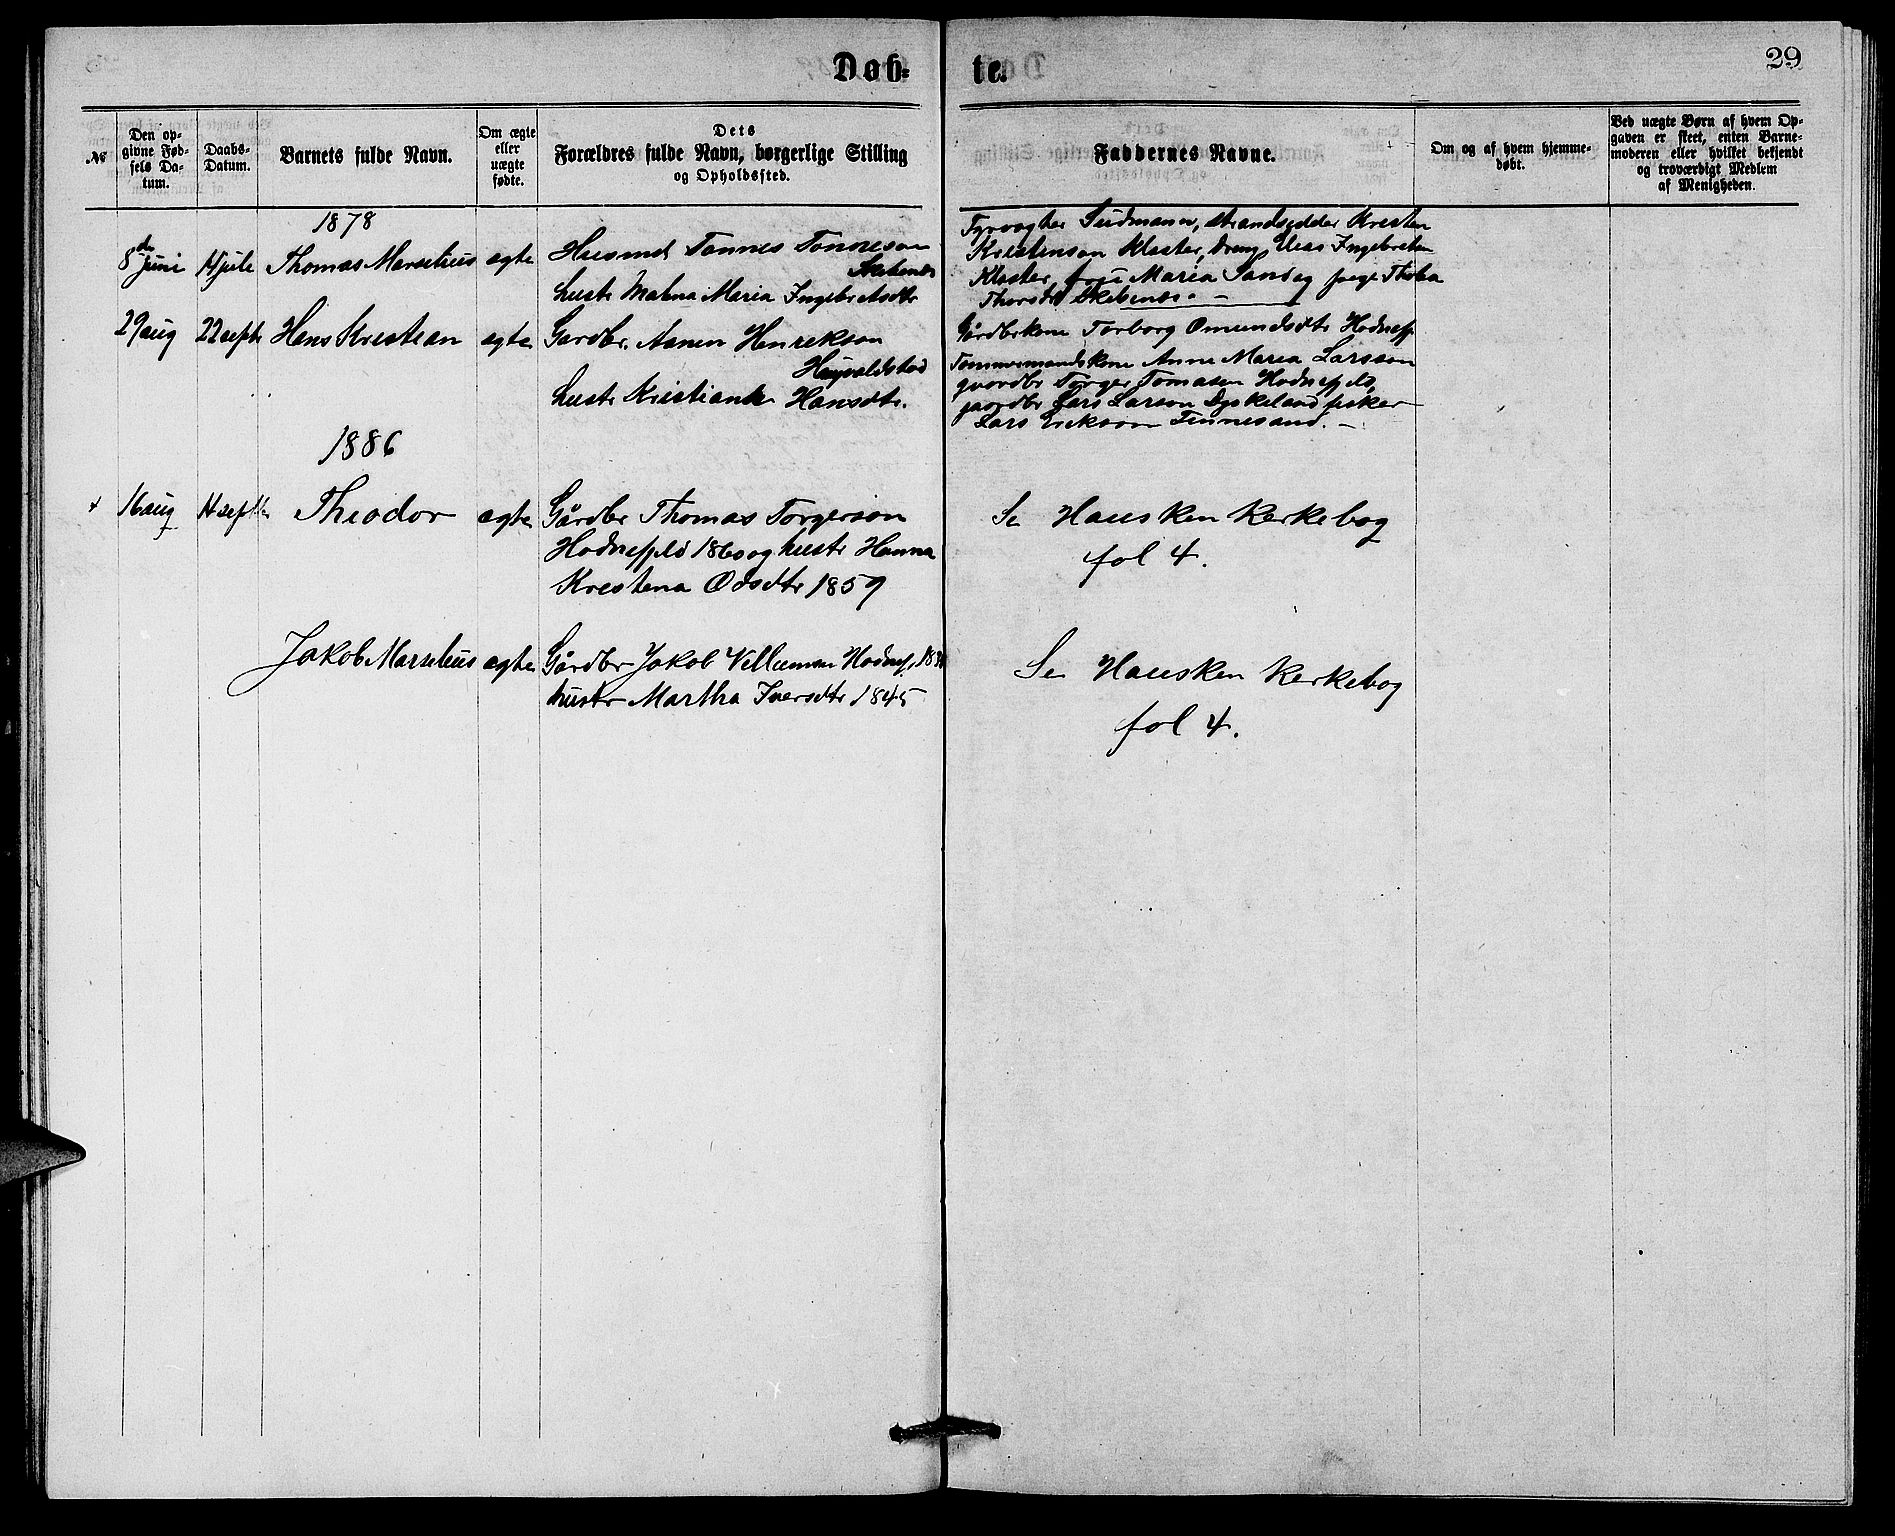 Døb-
te.
29
№
Den op-
givne Fød-
sels Da-
tum.
Daabs-
Datum.
Barnets fulde Navn.
Om ægte
eller
uægte
fødte.
Dets
Forældres fulde Navn, borgerlige Stilling
og Opholdssted.
Faddernes Navne.
Om og af hvem hjemme-
døbt.
Ved uægte Børn af hvem Op-
gaven er skeet, enten Barne-
moderen eller hvilket bekjendt
og troværdigt Medlem
af Menigheden.
1878
8de juni
14 juli
Thomas Marselius
ægte
Husmd Tønnes Tønneson
hustr Malena Maria Ingebretsdtr
Fyrvogter Sudmann, strandsidder Kristen
Kristenson Kloster, dreng Elias Ingebretsen
Kloster, Maria Sandøy pige
29 aug
22 sept
Hans Kristian
ægte
Gardbr. Asmen Henrekson
hustr Kristianne Hansdtr.
Gårdbrkone Torborg Omundsdtr Hodnefj
Tømmermandskone Anne Maria Larsson
gaardbr Torger Tomasen Hodnefjeld,
gaardbr Lars Larson Dyskeland fisker
Lars Erikson Finnesand. -
1886
16 aug
14 sept
Theodor
ægte
Gårdbr Thomas Torgerson
Hodnefjeld 1860 og hustr Hanna
Kristena Odsdtr 1859
Se Hausken Kerkebog
fol 4.
Jakob Marselius
ægte
Gårdbr Jakob Villumsen Hodnefj.
hustr Martha Iversdtr 1845
Se Hausken Kerkebog
fol 4.